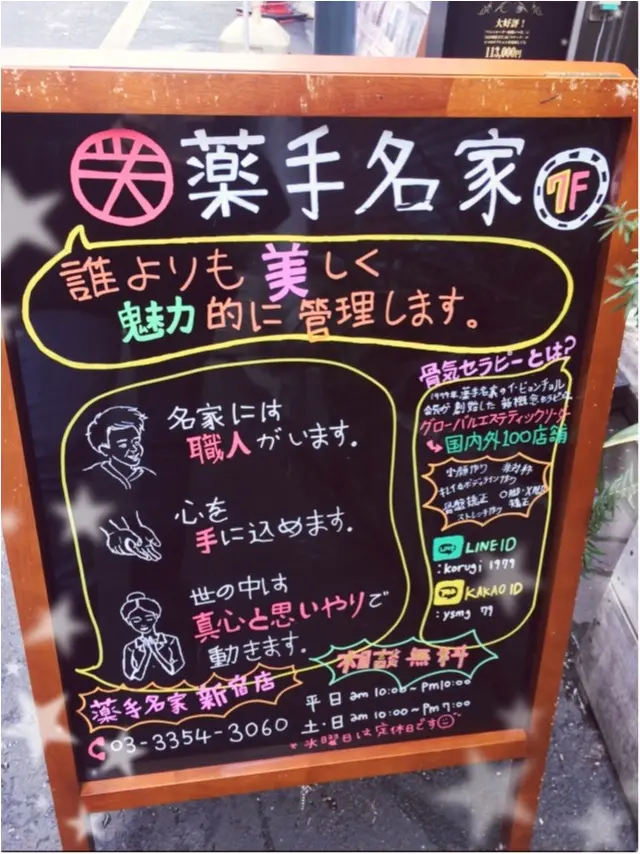 大好評！
113,000円
薬手名家 7F
誰よりも美しく
魅力的に管理します。
名家には
職人がいます。
心を
手に込めます。
世の中は
真心と思いやりで
動きます。
骨気セラピーとは?
1979年、薬手名家のイ・ビョンチョル
会長が創始した新概念セラピー
グローバルエステティックリーダー
国内外100店舗
小顔作り
キレイなボディライン作り
骨盤矯正 O脚・X脚
矯正
LINE
LINE ID
: korugi 1979
TALK
KAKAO ID
: ysmg 79
相談無料
薬手名家 新宿店
03-3354-3060
平日 am 10:00~Pm10:00
土・日 am 10:00~Pm 7:00
* 水曜日は定休日です